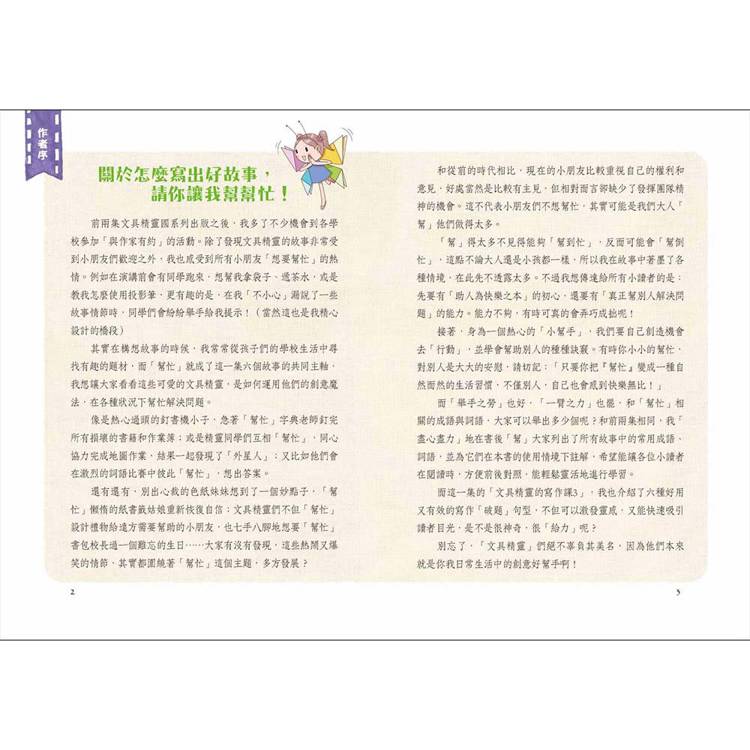 作者序
關於怎麼寫出好故事，
請你讓我幫幫忙！
前兩集文具精靈國系列出版之後，我多了不少機會到各學
校參加「與作家有約」的活動。除了發現文具精靈的故事非常受
到小朋友們歡迎之外，我也感受到所有小朋友「想要幫忙」的熱
情。例如在演講前會有同學跑來，想幫我拿袋子、透茶水，或是
教我怎麼使用投影筆，更有趣的是，在我「不小心」漏說了一些
故事情節時，同學們會紛紛舉手給我提示！（當然這也是我精心
設計的橋段）
其實在構想故事的時候，我常常從孩子們的學校生活中尋
找有趣的題材，而「幫忙」就成了這一集六個故事的共同主軸，
我想讓大家看看這些可愛的文具精靈，是如何運用他們的創意魔
法，在各種狀況下幫忙解決問題。
像是熱心過頭的釘書機小子，急著「幫忙」字典老師釘完
所有損壞的書籍和作業簿；或是精靈同學們互相「幫忙」，同心
協力完成地圖作業，結果一起發現了「外星人」；又比如他們會
在激烈的詞語比賽中彼此「幫忙」，想出答案。
還有還有，別出心裁的色紙妹妹想到了一個妙點子，「幫
忙」懶惰的紙書籤姑娘重新恢復自信；文具精靈們不但「幫忙」
設計禮物給遠方需要幫助的小朋友，也七手八腳地想要「幫忙」
書包校長過一個難忘的生日……大家有沒有發現，這些熱鬧又爆
笑的情節，其實都圍繞著「幫忙」這個主題，多方發展？
2
和從前的時代相比，現在的小朋友比較重視自己的權利和
意見，好處當然是比較有主見，但相對而言卻缺少了發揮團隊精
神的機會。這不代表小朋友們不想幫忙，其實可能是我們大人「
幫」他們做得太多。
「幫」得太多不見得能夠「幫到忙」，反而可能會「幫倒
忙」，這點不論大人還是小孩都一樣，所以我在故事中著墨了各
種情境，在此先不透露太多。不過我想傳達給所有小讀者的是：
先要有「助人為快樂之本」的初心，還要有「真正幫別人解決問
題」的能力。能力不夠，有時可真的會弄巧成拙呢！
接著，身為一個熱心的「小幫手」，我們要自己創造機會
去「行動」，並學會幫助別人的種種訣竅。有時你小小的幫忙，
對別人是大大的安慰，請切記：「只要你把『幫忙』變成一種自
然而然的生活習慣，不僅別人，自己也會感到快樂無比！」
而「舉手之勞」也好，「一臂之力」也罷，和「幫忙」相
關的成語與詞語，大家可以舉出多少個呢？和前兩集相同，我「
盡心盡力」地在書後「幫」大家列出了所有故事中的常用成語、
詞語，並為它們在本書的使用情境下註解，希望能讓各位小讀者
在閱讀時，方便前後對照，能輕鬆靈活地進行學習。
而這一集的「文具精靈的寫作課3」，我也介紹了六種好用
又有效的寫作「破題」句型，不但可以激發靈感，又能快速吸引
讀者目光，是不是很神奇、很「給力」呢？
別忘了，「文具精靈」們絕不辜負其美名，因為他們本來
就是你我日常生活中的創意好幫手啊！
3